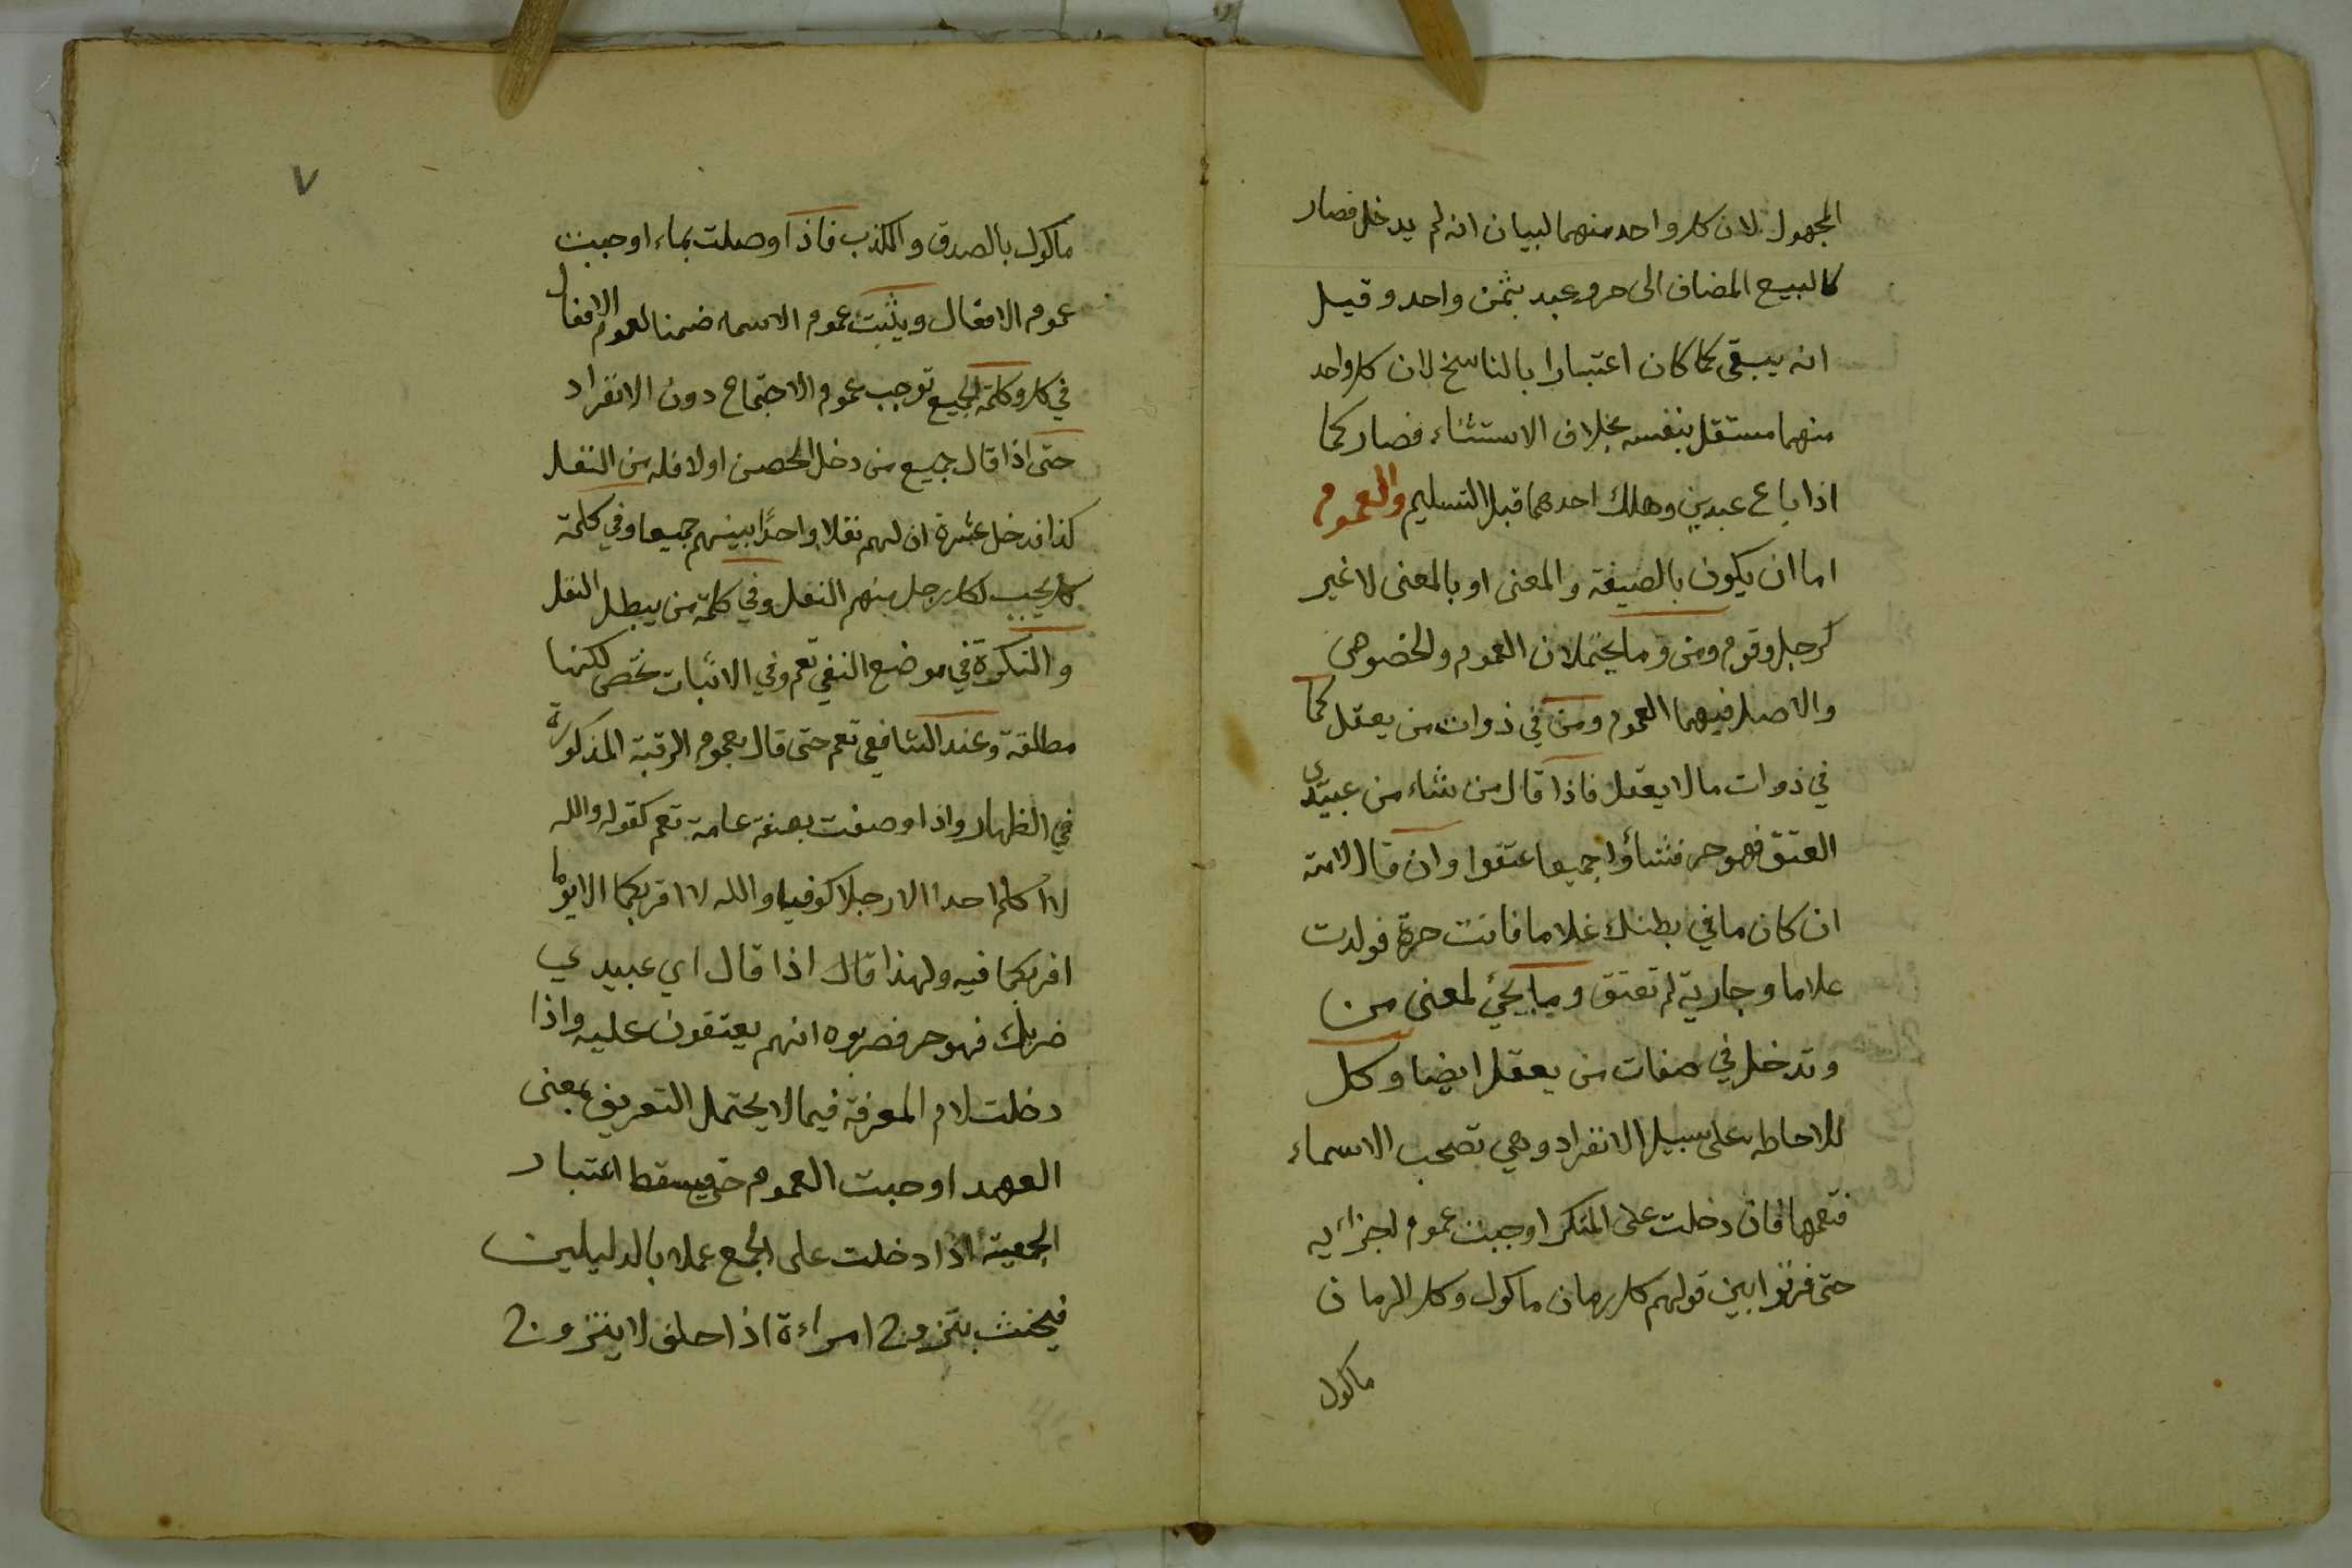 المجهول لان كل واحد منهما لبيان انه لم يدخل فصار
كالبيع المضاف الى حر وعبد بثمن واحد وقيل
انه يبقى كما كان اعتبارا بالناسخ لان كل واحد
منهما مستقل بنفسه بخلاف الاستثناء فصار كما
اذا باع عبدين وهلك احدهما قبل التسليم والعموم
اما ان يكون بالصيغة والمعنى او بالمعنى لا غير
كرجل وقوم ومن وما يحتملان العموم والخصوص
والاصل فيهما العموم ومن في ذوات من يعقل كما
في ذوات ما لا يعقل فاذا قال من شاء من عبيدى
العتق فهو حر فشاؤا جميعا عتقوا وان قال لامته
ان كان ما في بطنك غلاما فانت حرة فولدت
غلاما وجارية لم تعتق وما يجئ لمعنى من
وتدخل في صفات من يعقل ايضا وكل
للاحاطه على سبيل الانفراد وهي تصحب الاسماء
فتعمها فان دخلت على المنكر اوجبت عموم اجزائه
حتى فرقوا بين قولهم كل رمان ماكول وكل الرمان
ماكول
٧
ماكول بالصدق والكذب فاذا وصلت بماء اوجبت
عموم الافعال ويثبت عموم الاسماء ضمنا لعموم الافعال
في كل وكلمة الجميع توجب عموم الاجتماع دون الانفراد
حتى اذا قال جميع من دخل الحصن اولا فله من النفل
كذا فدخل عشرة ان لهم نفلا واحدًا بينهم جميعا وفي كلمة
كل يجب لكل رجل منهم النفل وفي كلمة من يبطل النفل
والنكرة في موضع النفي تعم وفي الاثبات تخص لكنها
مطلقة وعند الشافعي تعم حتى قال بعموم الرقبة المذكورة
في الظهار واذا وصفت بصفة عامة تعم كقوله والله
لا اكلم احدا الا رجلا كوفيا والله لا اقربكما الا يوما
اقربكما فيه ولهذا قال اذا قال اي عبيدي
ضربك فهو حر فضربوه انهم يعتقون عليه واذا
دخلت لام المعرفة فيما لا يحتمل التعريف بمعنى
العهد اوجبت العموم حتى يسقط اعتبار
الجمعية اذا دخلت على الجمع عملا بالدليلين
فيحنث بتزوج امراءة اذا حلف لا يتزوج